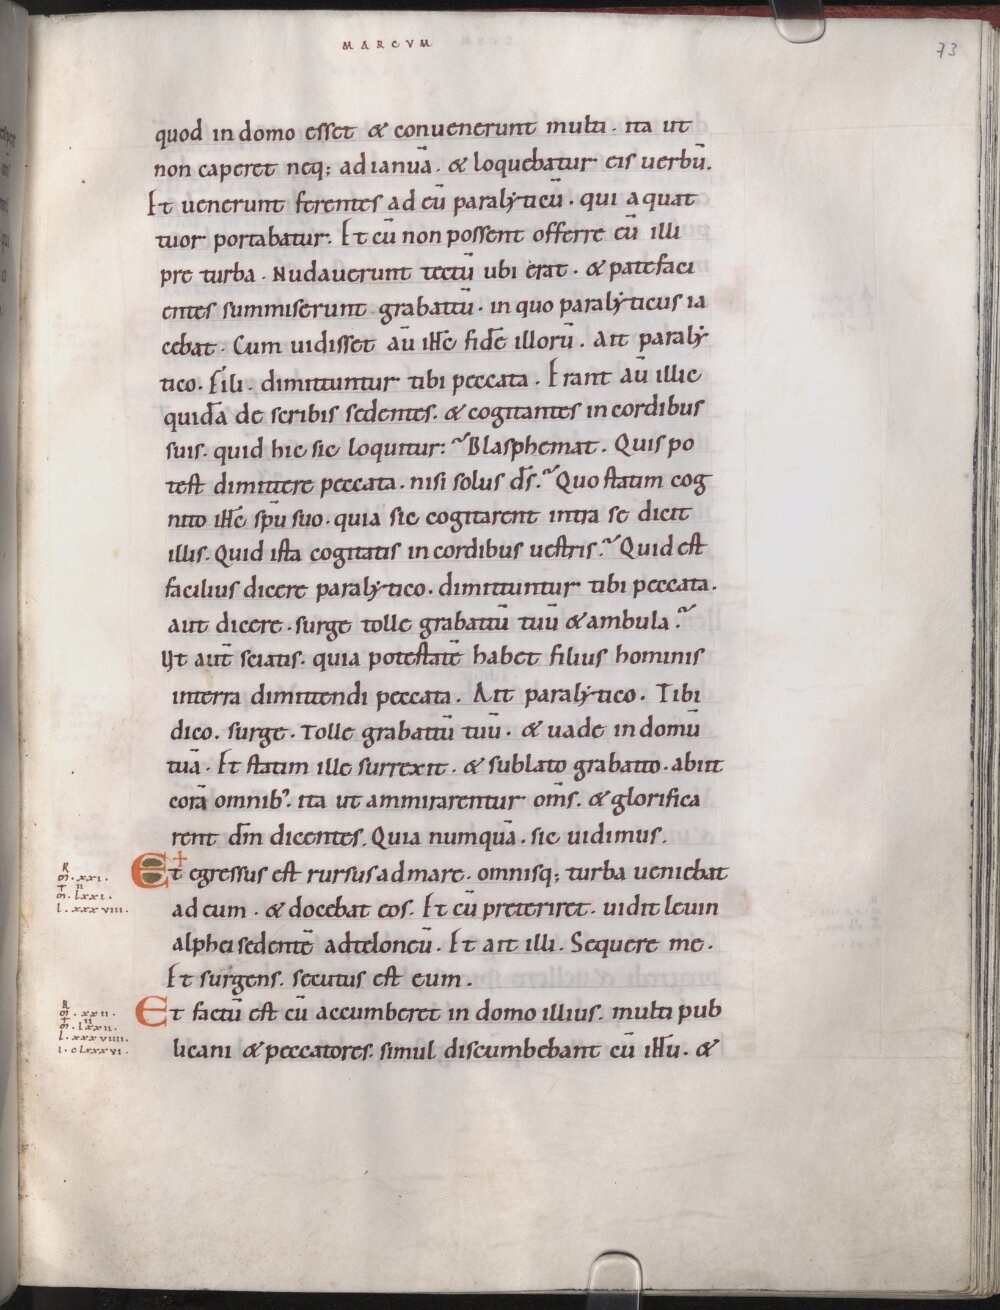 MARCVM
73
quod in domo esset & conuenerunt multi. ita ut
non caperet neq; ad ianuā. & loquebatur eis uerbū.
Et uenerunt ferentes ad eū paralyticū. qui a quat
tuor portabatur. Et cū non possent offerre eū illi
pre turba. Nudauerunt tectū ubi erat. & patefaci
entes summiserunt grabattū. in quo paralyticus ia
cebat. Cum uidisset aū ihc̄ fidē illorū. Ait paraly
tico. Fili. dimittuntur tibi peccata. Erant aū illic
quidā de scribis sedentes. & cogitantes in cordibus
suis. quid hic sic loquitur: Blasphemat. Quis po
test dimittere peccata. nisi solus ds̄. Quo statim cog
nito ihc̄ spū suo. quia sic cogitarent intra se dicit
illis. Quid ista cogitatis in cordibus uestris. Quid est
facilius dicere paralytico. dimittuntur tibi peccata.
aut dicere. surge tolle grabattū tuū & ambula.
Ut aut̄ sciatis. quia potestatē habet filius hominis
in terra dimittendi peccata. Ait paralytico. Tibi
dico. surge. Tolle grabattū tuū. & uade in domū
tuā. Et statim ille surrexit. & sublato grabatto. abiit
corā omnib'. ita ut ammirarentur om̄s. & glorifica
rent dm̄ dicentes. Quia numquā. sic uidimus.
R
m. xxi.
+ II
m. lxxi.
l. xxxviii.
Et egressus est rursus ad mare. omnisq; turba ueniebat
ad eum. & docebat eos. Et cū preteriret. uidit leuin
alphei sedentē ad teloneū. Et ait illi. Sequere me.
Et surgens. secutus est eum.
R
m. xxii.
+ II
m. lxxii.
l. xxxviiii.
i. clxxxvi.
Et factū est cū accumberet in domo illius. multi pub
licani & peccatores. simul discumbebant cū ihū. &